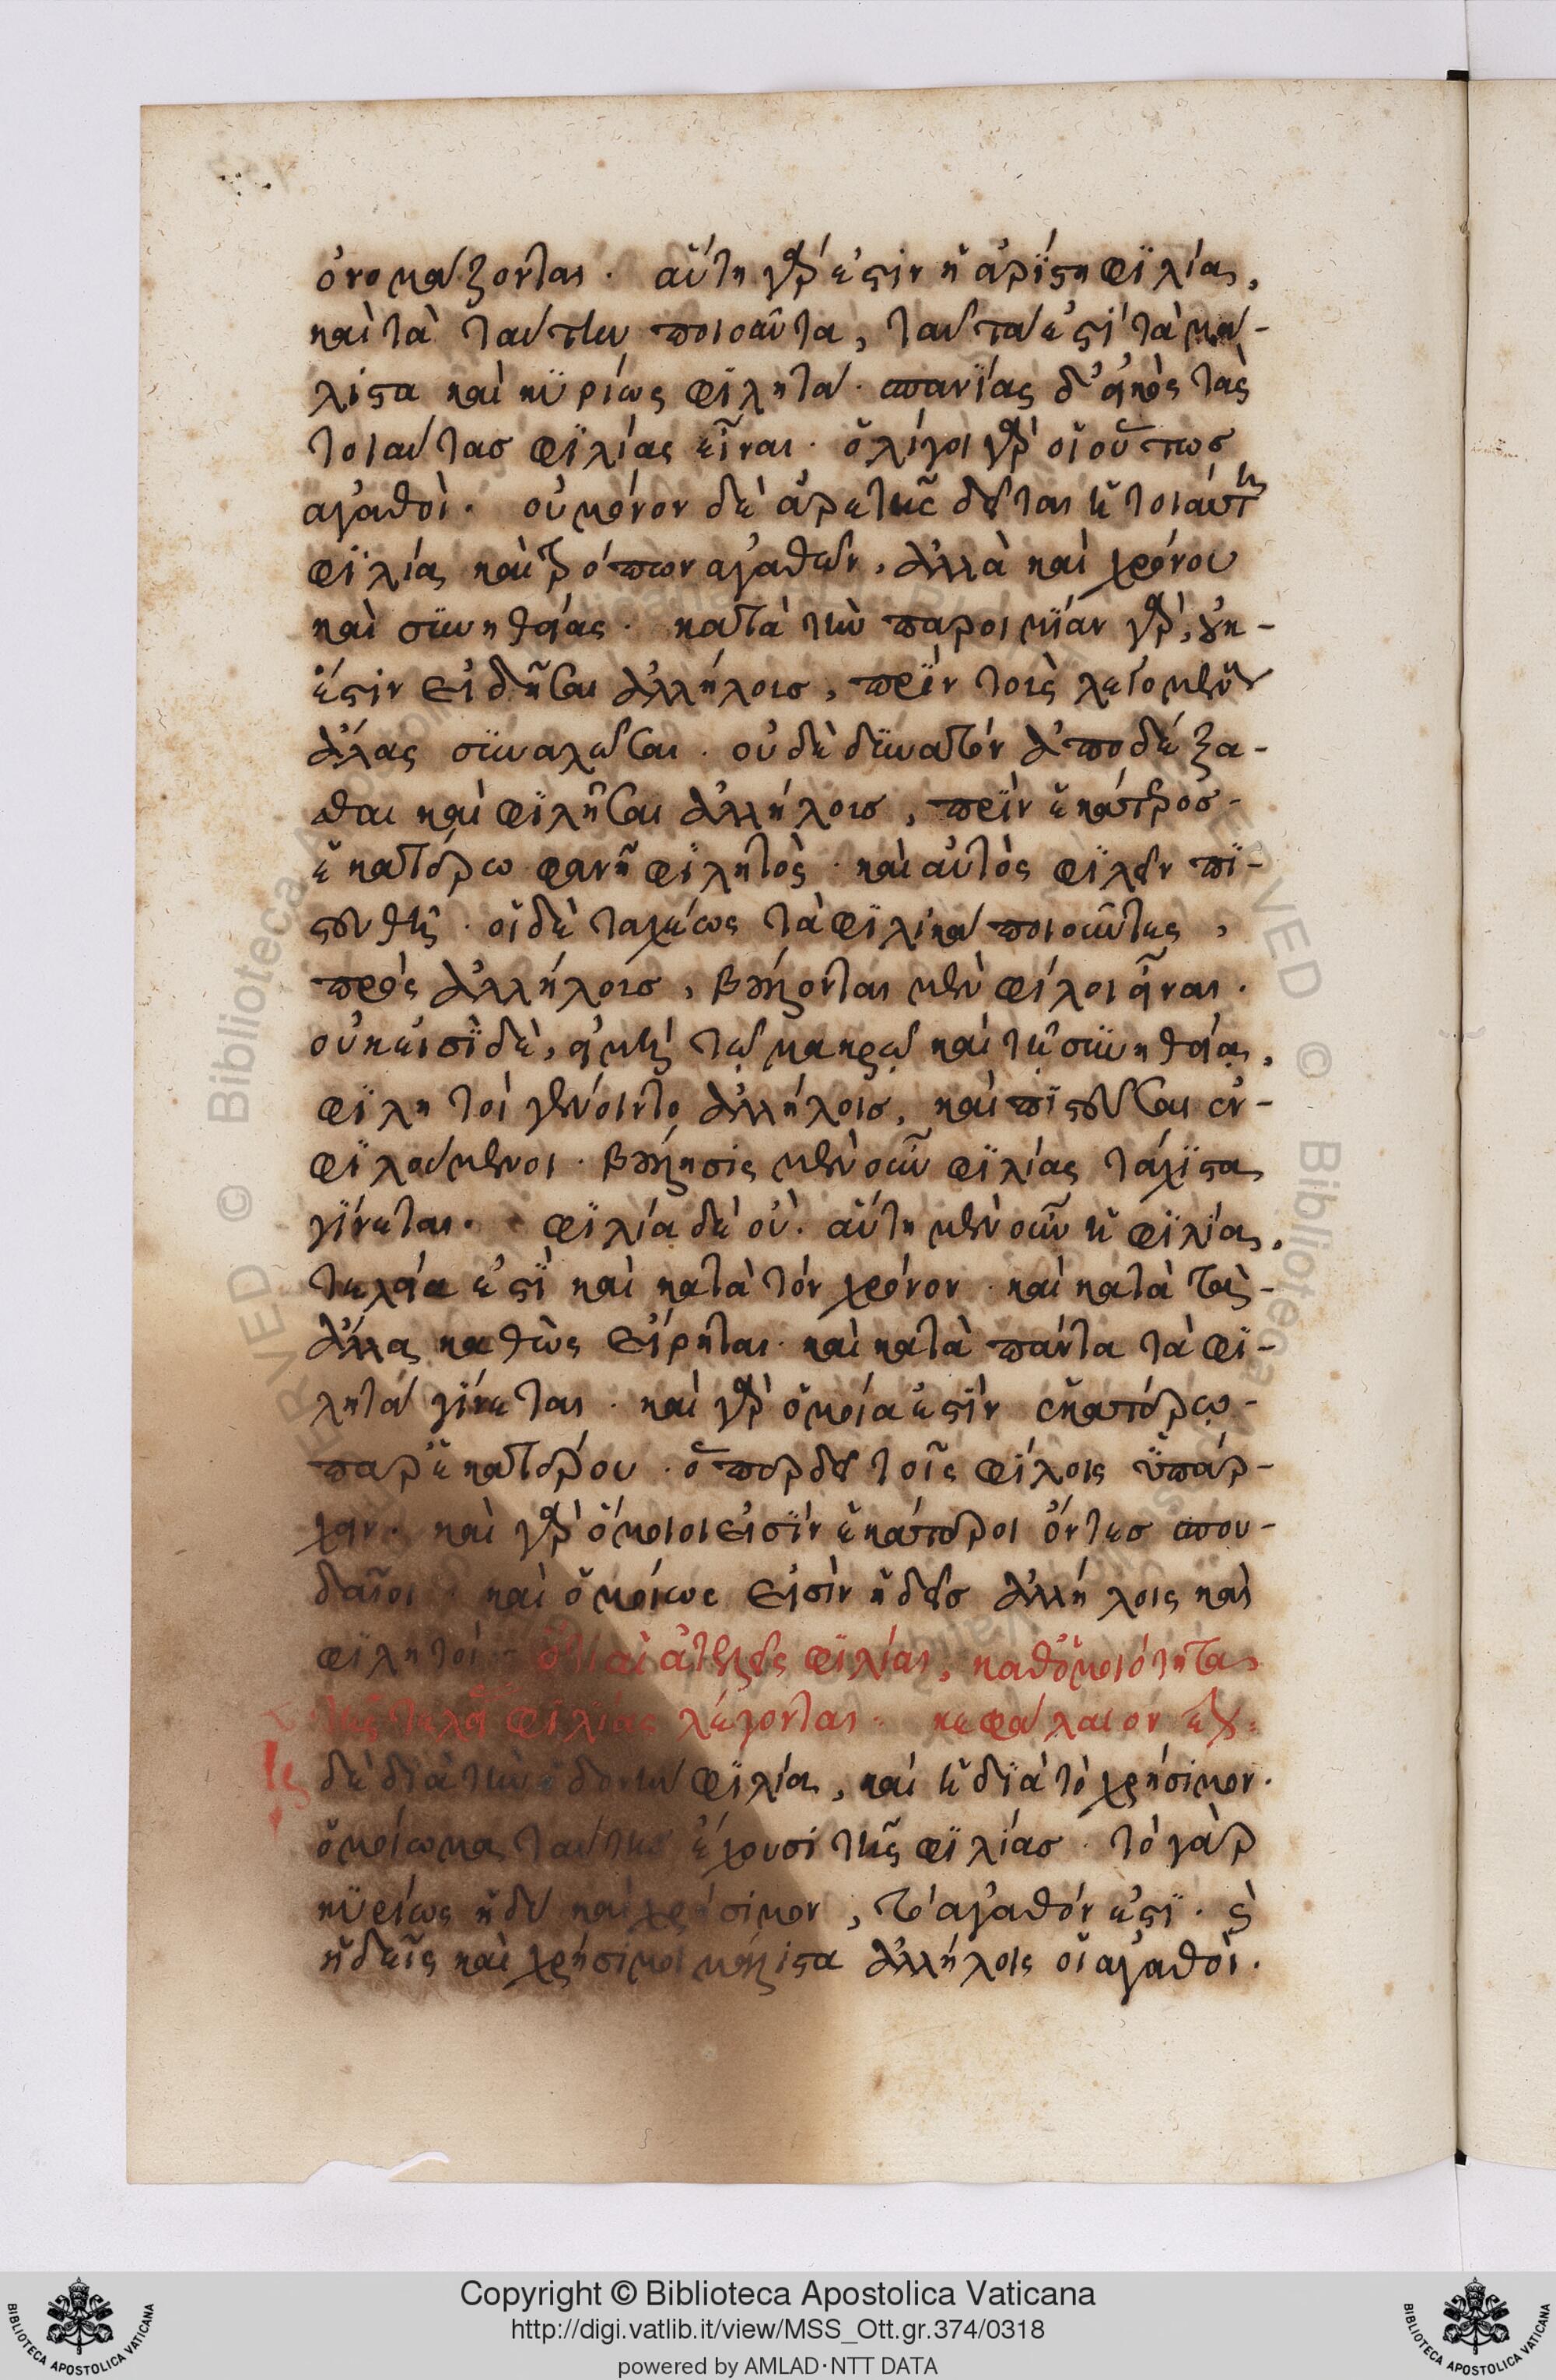 ὀνομάζονται. αὕτη γάρ ἐστιν ἡ ἀρίστη φιλία,
καὶ τὰ ταύτην ποιοῦντα, ταῦτά ἐστι τὰ μά-
λιστα καὶ κυρίως φιλητά. σπανίας δ' εἰκὸς τὰς
τοιαύτας φιλίας εἶναι. ὀλίγοι γὰρ οἱ οὕτως
ἀγαθοί. οὐ μόνον δὲ ἀρετῆς δεῖται ἡ τοιαύτη
φιλία καὶ τρόπων ἀγαθῶν, ἀλλὰ καὶ χρόνου
καὶ συνηθείας. κατὰ τὴν παροιμίαν γάρ, οὐκ
ἔστιν εἰδῆσαι ἀλλήλοις, πρὶν τοὺς λεγομένους
ἅλας συναλῶσαι. οὐδὲ δυνατὸν ἀποδέξα-
σθαι καὶ φιλῆσαι ἀλλήλοις, πρὶν ἑκάτερος
ἑκατέρω φανῇ φιλητὸς. καὶ αὐτὸς φιλεῖν πι-
στευθῇ. οἱ δὲ ταχέως τὰ φιλικὰ ποιοῦντες,
πρὸς ἀλλήλοις, βούλονται μὲν φίλοι εἶναι.
οὐκ εἰσὶ δὲ, εἰ μὴ τῷ μακρῷ καὶ τῇ συνηθείᾳ,
φιλητοὶ γένοιντο ἀλλήλοις, καὶ πιστεῦσαι εν-
φιλούμενοι. βούλησις μὲν οὖν φιλίας τάχιστα
γίνεται. φιλία δὲ οὔ. αὕτη μὲν οὖν ἡ φιλία,
τελεία ἐστὶ καὶ κατὰ τὸν χρόνον. καὶ κατὰ τὰ-
ἄλλα καθὼς εἴρηται. καὶ κατὰ πάντα τὰ φι-
λητὰ γίνεται. καὶ γὰρ ὁμοία ἐστὶν ἑκατέρῳ-
παρ' ἑκατέρου. ὅπερ δεῖ τοῖς φίλοις ὑπάρ-
χειν. καὶ γὰρ ὅμοιοι εἰσὶν ἑκάτεροι ὄντες σπου-
δαῖοι. καὶ ὁμοίως εἰσὶν ἡδεῖς ἀλλήλοις καὶ
φιλητοί. ὅτι αἱ ἀτελεῖς φιλίαι, καθ' ὁμοιότητα
τῆς τελείας φιλίας λέγονται. κεφάλαιον
δὲ διὰ τὴν ἡδονὴν φιλία, καὶ ἡ διὰ τὸ χρήσιμον.
ὁμοίωμα ταύτης ἔχουσι τῆς φιλίας. τὸ γὰρ
κυρίως ἡδὺ καὶ χρήσιμον, τὸ ἀγαθόν ἐστι. καὶ
ἡδεῖς καὶ χρήσιμοι μάλιστα ἀλλήλοις οἱ ἀγαθοί.
Copyright © Biblioteca Apostolica Vaticana
http://digi.vatlib.it/view/MSS_Ott.gr.374/0318
powered by AMLAD·NTT DATA